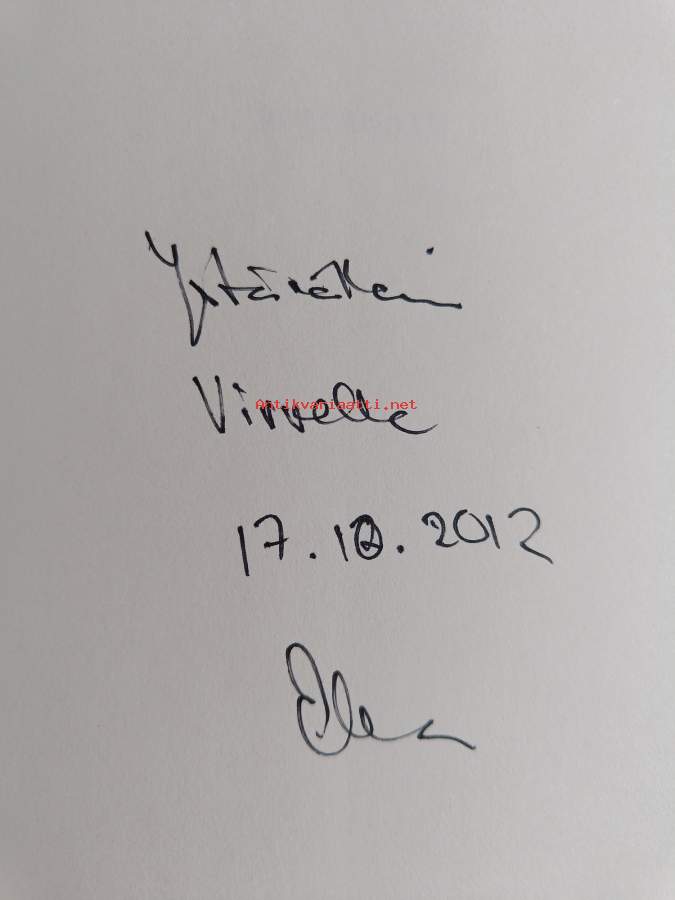 Ystäväkseni
Virvelle
Antikvariaatti.net
17.10.2012